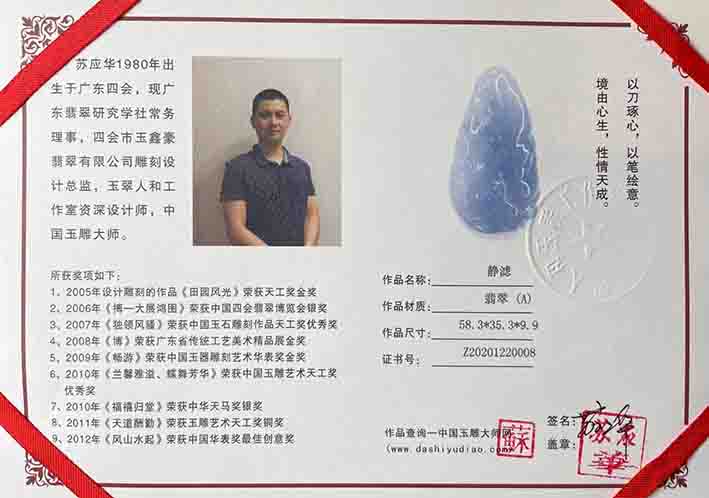 苏应华1980年出
生于广东四会，现广
东翡翠研究学社常务
理事，四会市玉鑫豪
翡翠有限公司雕刻设
计总监，玉翠人和工
作室资深设计师，中
国玉雕大师。
所获奖项如下：
1、2005年设计雕刻的作品《田园风光》荣获天工奖金奖
2、2006年《搏一大展鸿图》荣获中国四会翡翠博览会银奖
3、2007年《独领风骚》荣获中国玉石雕刻作品天工奖优秀奖
4、2008年《博》荣获广东省传统工艺美术精品展金奖
5、2009年《畅游》荣获中国玉器雕刻艺术华表奖金奖
6、2010年《兰馨雅溢、蝶舞芳华》荣获中国玉雕艺术天工奖
优秀奖
7、2010年《福禧归堂》荣获中华天马奖银奖
8、2011年《天道酬勤》荣获玉雕艺术天工奖铜奖
9、2012年《风山水起》荣获中国华表奖最佳创意奖
以刀琢心，以笔绘意。
境由心生，性情天成。
作品名称：静滤
作品材质：翡翠 (A)
作品尺寸：58.3*35.3*9.9
证书号：Z20201220008
作品查询一中国玉雕大师网
(www.dashiyudiao.com)
蘇
签名：
盖章：